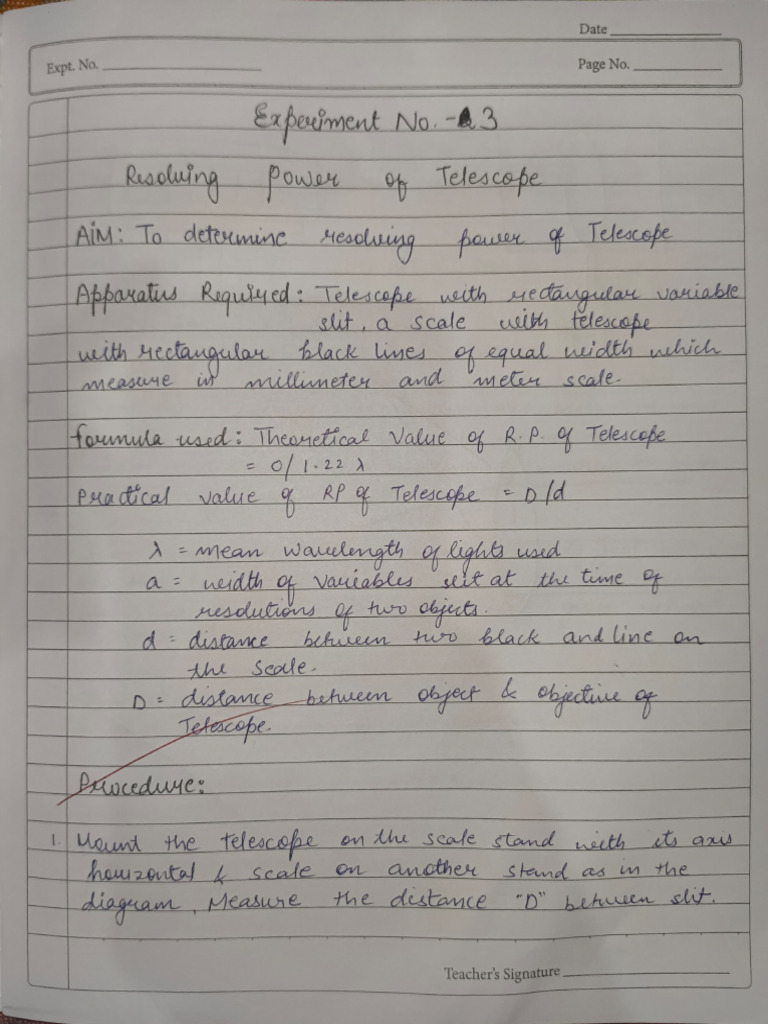 Date
Expt. No.
Page No.
Experiment No. - 3
Resolving Power of Telescope
AiM: To determine resolving power of Telescope
Apparatus Required: Telescope with rectangular variable
slit, a scale with telescope
with rectangular black lines of equal width which
measure in millimeter and meter scale.
formula used: Theoretical Value of R.P. of Telescope
= 0/1.22 λ
Practical value of RP of Telescope = D/d
λ = mean wavelength of lights used
a = width of variables slit at the time of
resolutions of two objects.
d = distance between two black and line on
the scale.
D = distance between object & objective of
Telescope.
Procedure:
1. Mount the telescope on the scale stand with its axis
horizontal & scale on another stand as in the
diagram, Measure the distance "D" between slit.
Teacher's Signature